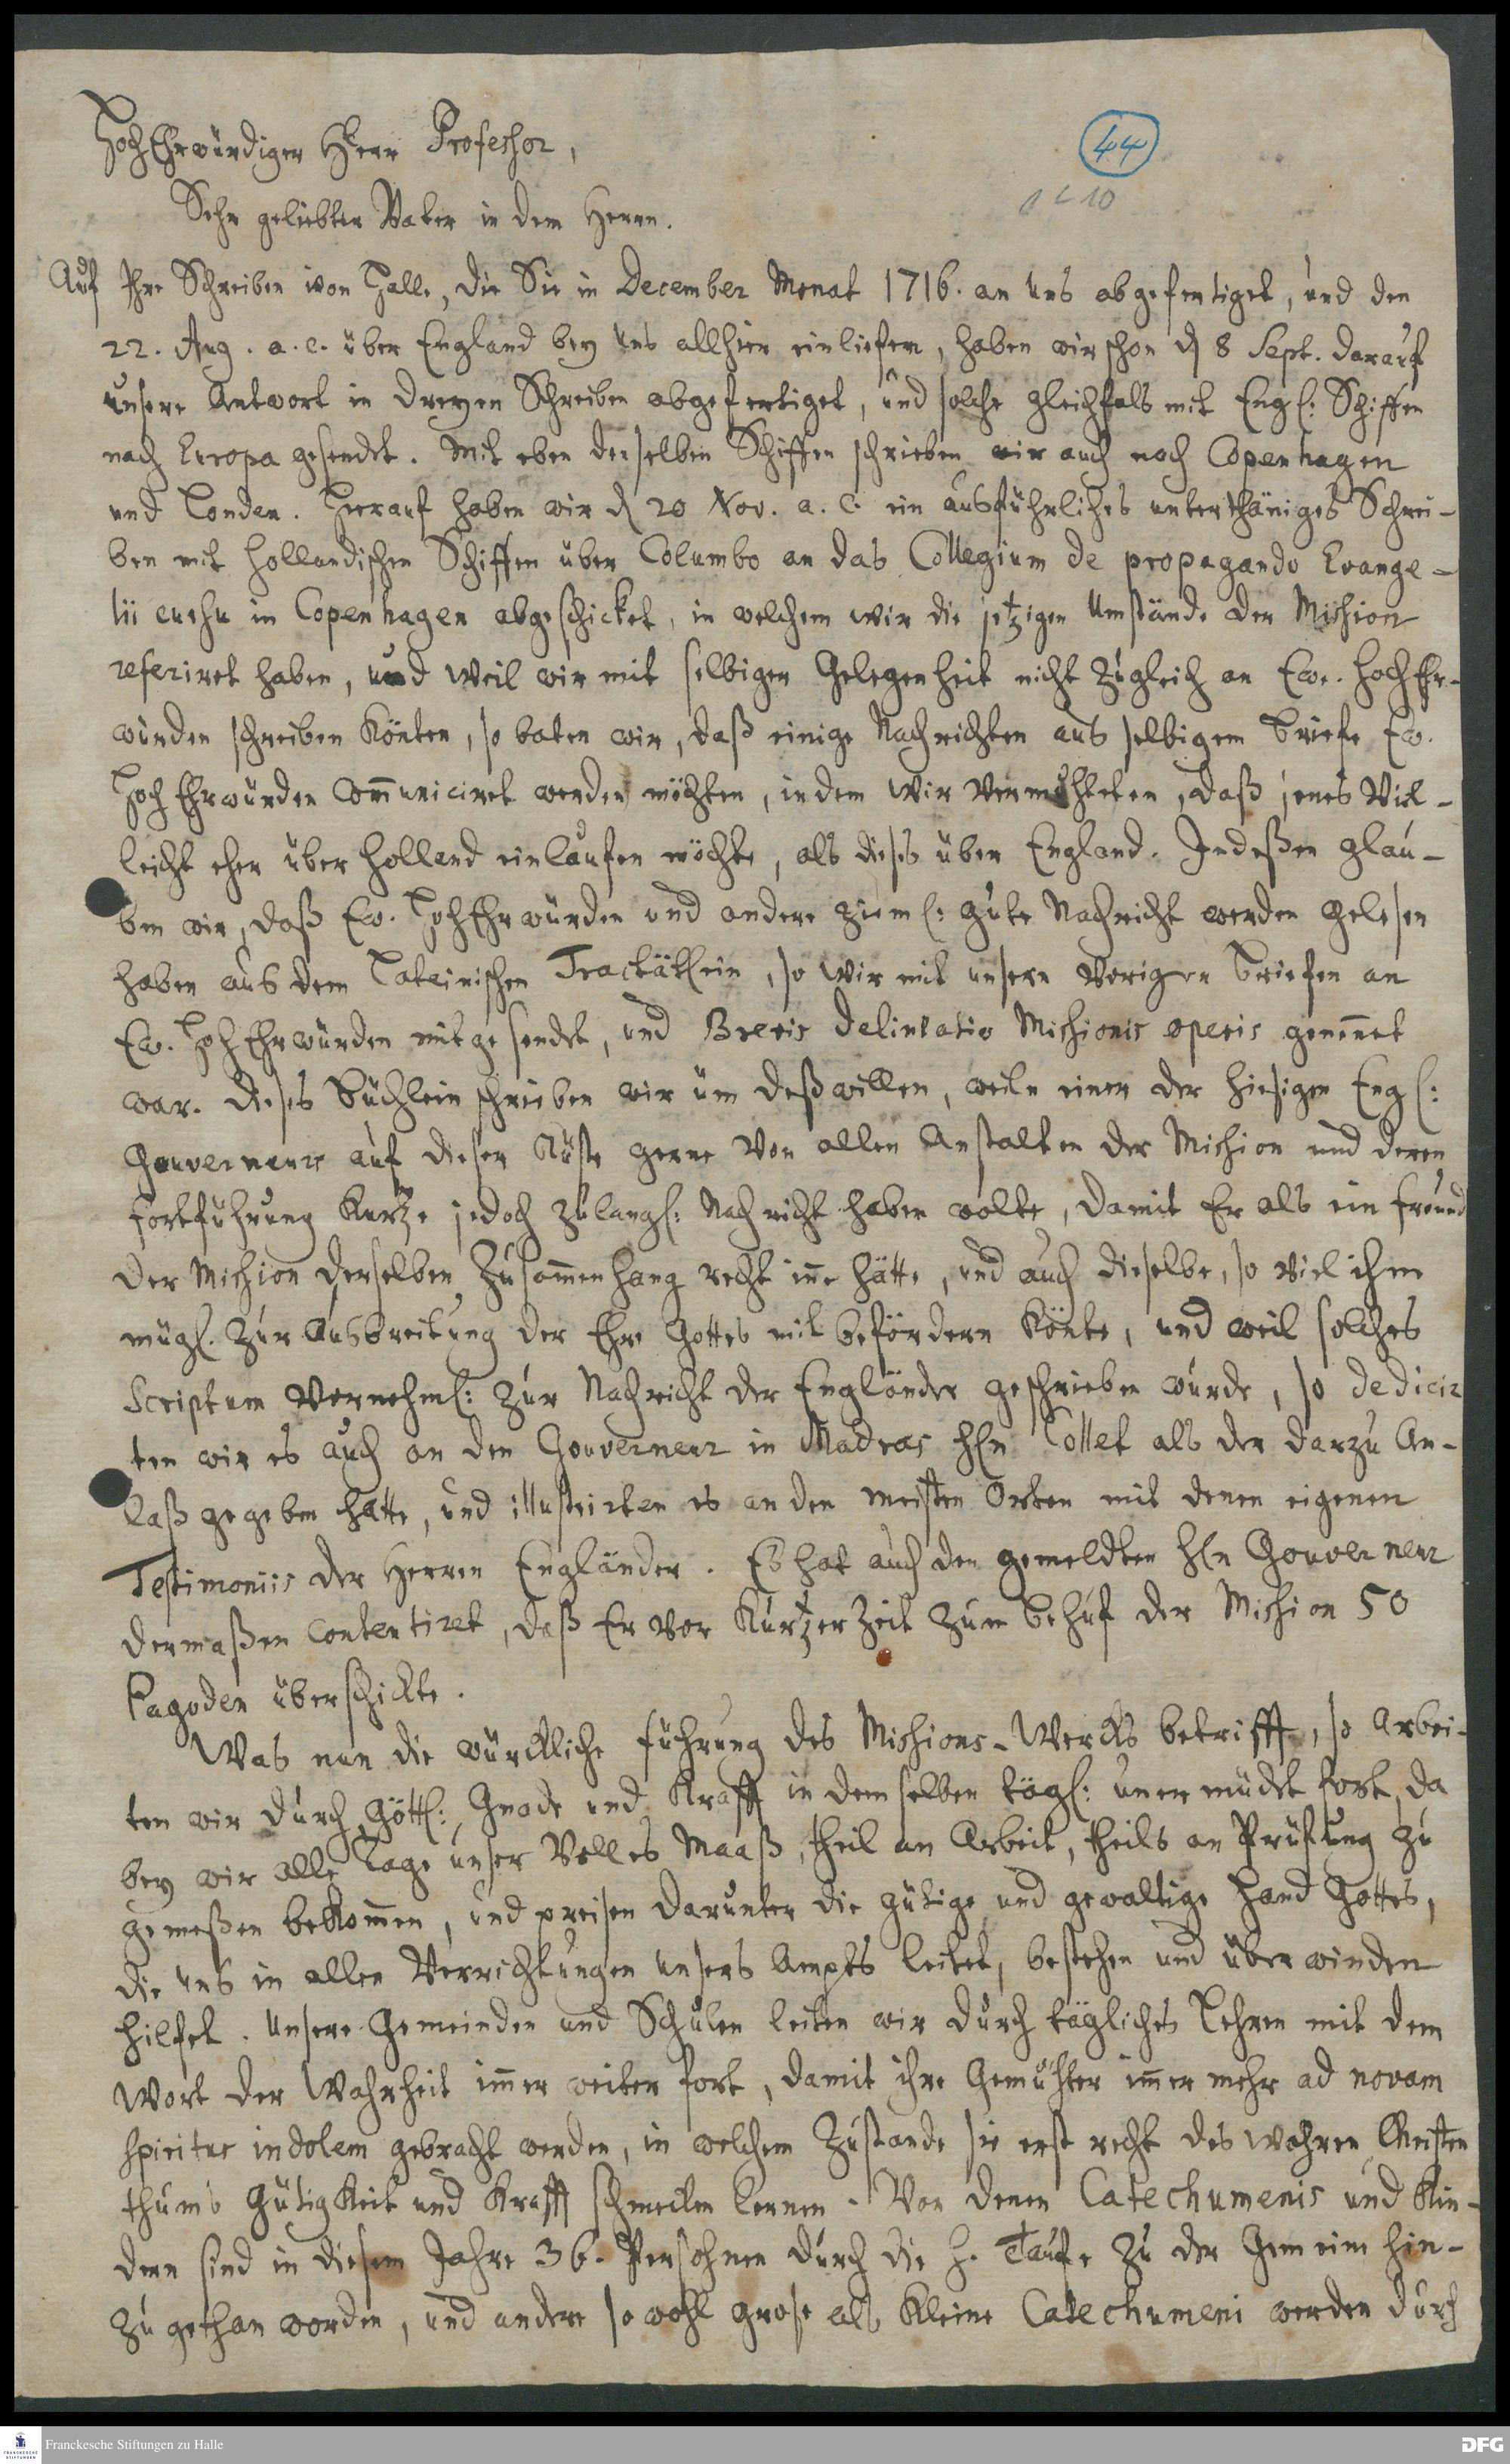 HochEhrwürdiger Herr Professor,
44
1 C 10
Sehr geliebter Vater in dem Herrn.
Auf Ihre Schreiben von Halle, die Sie in December Monat 1716. an uns abgefertiget, und den
22. Aug. a. c. über England bey uns allhier einliefen, haben wir schon d 8 Sept. darauf
unsere Antwort in dreyen Schreiben abgefertiget, und solche gleichfals mit Engl: Schiffen
nach Europa gesendet. Mit eben denselben Schiffen schrieben wir auch nach Copenhagen
und London. Hierauf haben wir d 20 Nov. a. c. ein ausführliches unterthäniges Schrei-
ben mit holländischen Schiffen über Columbo an das Collegium de propagando Evange-
lii cursu in Copenhagen abgeschicket, in welchem wir die jetzigen Umstände der Mission
referiret haben, und weil wir mit selbiger Gelegenheit nicht zugleich an Ew. HochEhr-
würden schreiben könten, so baten wir, daß einige Nachrichten aus selbigem Briefe Ew.
HochEhrwürden communiciret werden möchten, indem wir vermuhteten, daß jenes viel-
leicht eher über Holland einlaufen möchte, als dieses über England. Indeßen glau-
ben wir, daß Ew. HochEhrwürden und andere zieml: gute Nachricht werden gelesen
haben aus dem Lateinischen Tractätlein, so wir mit unsern vorigen Briefen an
Ew. HochEhrwürden mitgesendet, und Brevis delineatio Missionis operis genennet
war. Dieses Büchlein schrieben wir üm deßwillen, weiln einer der hiesigen Engl:
Gouverneurs auf dieser Küste gerne von allen Anstalten der Mission und deren
Fortführung kurtze jedoch zulängl: Nachricht haben wolte, damit Er als ein Freund
der Mission derselben Zusammenhang recht inne hätte, und auch dieselbe, so viel ihm
mügl. zur Ausbreitung der Ehre Gottes mit befördern könte, und weil solches
Scriptum vornehml: zur Nachricht der Engländer geschrieben wurde, so dedicir
ten wir es auch an den Gouverneur in Madras Hln Collet als der darzu An-
laß gegeben hatte, und illustrirten es an den meisten Orten mit denen eigenen
Testimoniis der Herren Engländer. Es hat auch den gemeldten Hln Gouverneur
dermaßen contentiret, daß Er vor kurtzer Zeit zum behuf der Mission 50
Pagoden überschickte.
Was nun die würckliche Führung des Missions-Wercks betrifft, so arbei-
ten wir durch Göttl: Gnade und Krafft in demselben tägl: unermüdet fort, da
bey wir alle Tage unser volles Maaß, theil an Arbeit, theils an Prüfung zu
gemeßen bekommen, und preisen darunter die gütige und gewaltige Hand Gottes,
die uns in allen Verrichtungen unsers Ampts leitet, bestehen und überwinden
hilfet. Unsere Gemeinden und Schulen leiten wir durch tägliches Lehren mit dem
Wort der Wahrheit immer weiter fort, damit ihre Gemühter immer mehr ad novam
spiritus indolem gebracht werden, in welchem Zustande sie erst recht des wahren Christen
thums Gütigkeit und Krafft schmecken lernen. Von denen Catechumenis und Kin-
dern sind in diesem Jahre 36. Persohnen durch die H. Taufe zu der Gemeine hin-
zugethan worden, und andere so wohl grose als kleine Catechumeni werden durch
FRANCKESCHE STIFTUNGEN
Franckesche Stiftungen zu Halle
DFG